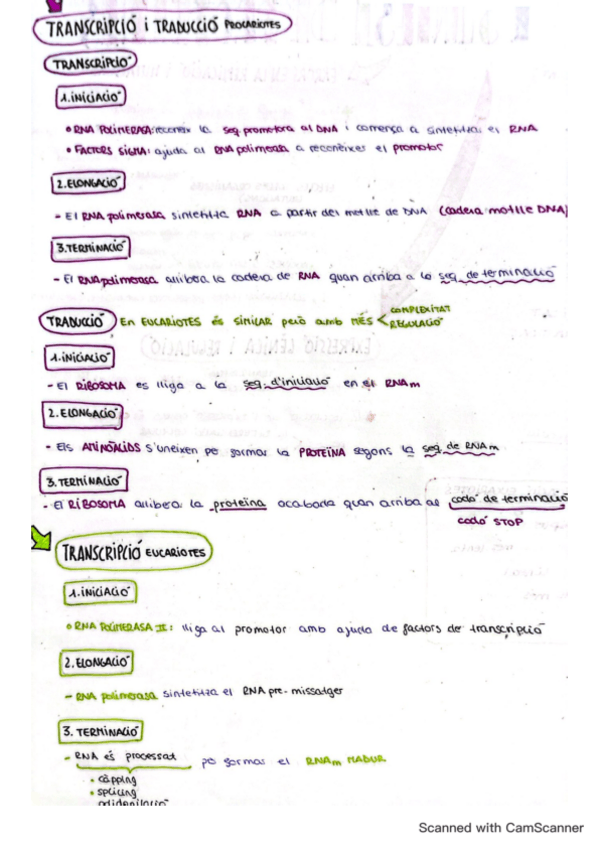 TRANSCRIPCIÓ i TRADUCCIÓ PROCARIOTES
TRANSCRIPCIÓ
1. INICIACIÓ
• RNA POLIMERASA: reconeix la seq promotora al DNA i comença a sintetitzar el RNA
• FACTORS SIGMA: ajuda al RNA polimerasa a reconèixer el promotor
2. ELONGACIÓ
- El RNA polimerasa sintetitza RNA a partir del motlle de DNA (cadena motlle DNA)
3. TERMINACIÓ
- El RNA polimerasa allibera la cadena de RNA quan arriba a la seq. de terminació
TRADUCCIÓ En EUCARIOTES és similar però amb MÉS < COMPLEXITAT
REGULACIÓ
1. INICIACIÓ
- El RIBOSOMA es lliga a la seq. d'iniciació en el RNAm
2. ELONGACIÓ
- Els AMINOÀCIDS s'uneixen per formar la PROTEÏNA segons la seq. de RNAm
3. TERMINACIÓ
- El RIBOSOMA allibera la proteïna acabada quan arriba al codó de terminació
codó STOP
TRANSCRIPCIÓ EUCARIOTES
1. INICIACIÓ
• RNA POLIMERASA II: lliga al promotor amb ajuda de factors de transcripció
2. ELONGACIÓ
- RNA polimerasa sintetitza el RNA pre-missatger
3. TERMINACIÓ
- RNA és processat per formar el RNAm MADUR
• capping
• splicing
Scanned with CamScanner